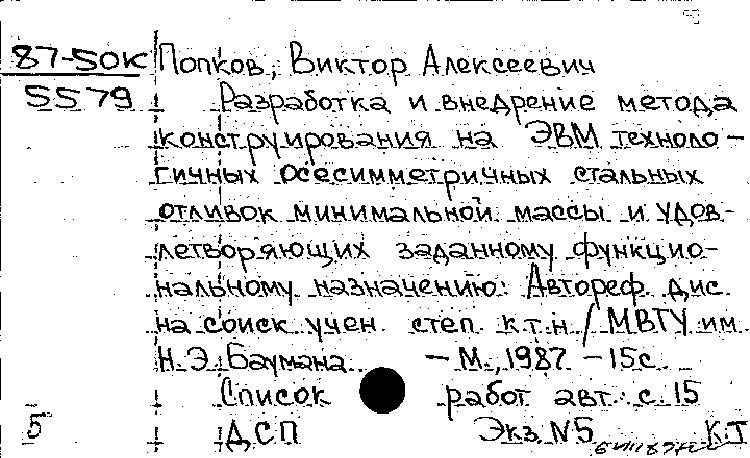 87-50К Попков, Виктор Алексеевич
5579 Разработка и внедрение метода
конструирования на ЭВМ техноло-
гичных осесимметричных стальных
отливок минимальной массы и удов-
летворяющих заданному функцио-
нальному назначению: Автореф. дис
на соиск учен. степ. к.т.н / МВТУ им.
Н.Э.Баумана. - М., 1987. - 15с.
Список работ авт.: с. 15
5 ДСП Экз. N5 К.Т